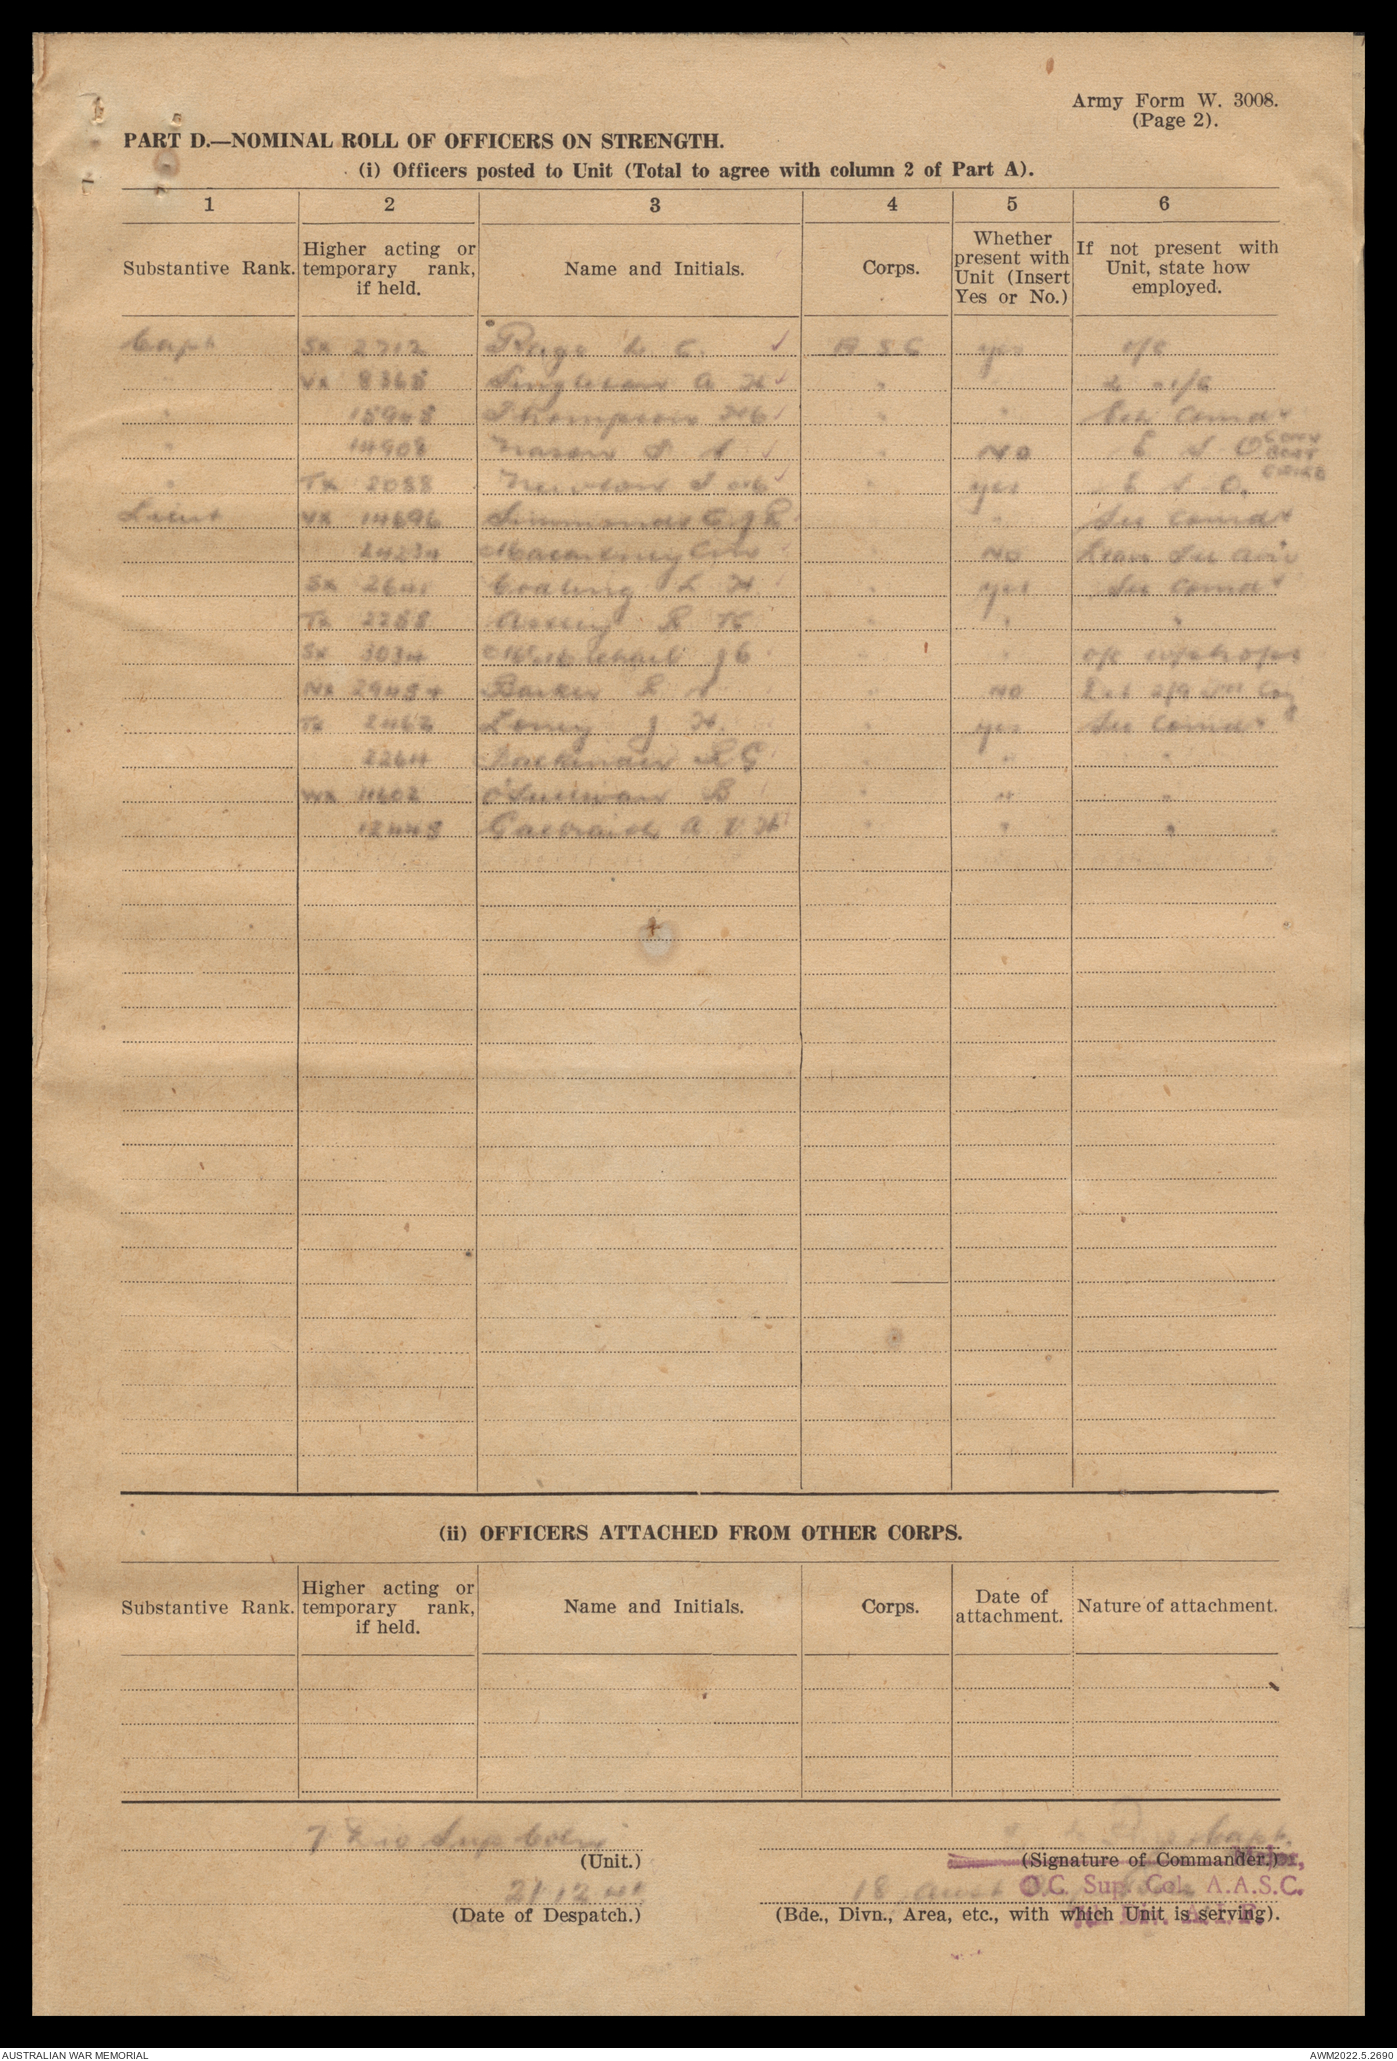 Army Form W. 3008.
(Page 2).
PART D.—NOMINAL ROLL OF OFFICERS ON STRENGTH.
(i) Officers posted to Unit (Total to agree with column 2 of Part A).
1 2 3 4 5 6
Substantive Rank. Higher acting or temporary rank, if held. Name and Initials. Corps. Whether present with Unit (Insert Yes or No.) If not present with Unit, state how employed.
Capt SX 2712 Page L C. ✓ ASC yes o/c
" VX 8368 Singleton A H ✓ " 2 i/c
" 15948 Thompson ✓ " " Ech Comd
" 14908 Mason ✓ NO
" TX 2088 Newton ✓ " yes
Lieut VX 14696 Simmonds C J R " " Sec Comd
24234 Macartney " NO
SX 2641 Codling L H " yes Sec Comd
TX 2288 R K " " "
SX 3034 McMichael J C " " o/c w/shops
NX 29484 Barker R " NO
TX 2462 Loney J H. " yes Sec Comd
2264 R G " " "
WX 11602 O'Sullivan B " " "
12448 Galbraith A V H " " "
(ii) OFFICERS ATTACHED FROM OTHER CORPS.
Substantive Rank. Higher acting or temporary rank, if held. Name and Initials. Corps. Date of attachment. Nature of attachment.
7 Div Sup Coln Capt.
(Unit.) (Signature of Commander.) Major,
21 12 41 18 Aust
O.C. Sup. Col. A.A.S.C.
(Date of Despatch.) (Bde., Divn., Area, etc., with which Unit is serving).
7th Div. A.I.F.
AUSTRALIAN WAR MEMORIAL AWM2022.5.2690